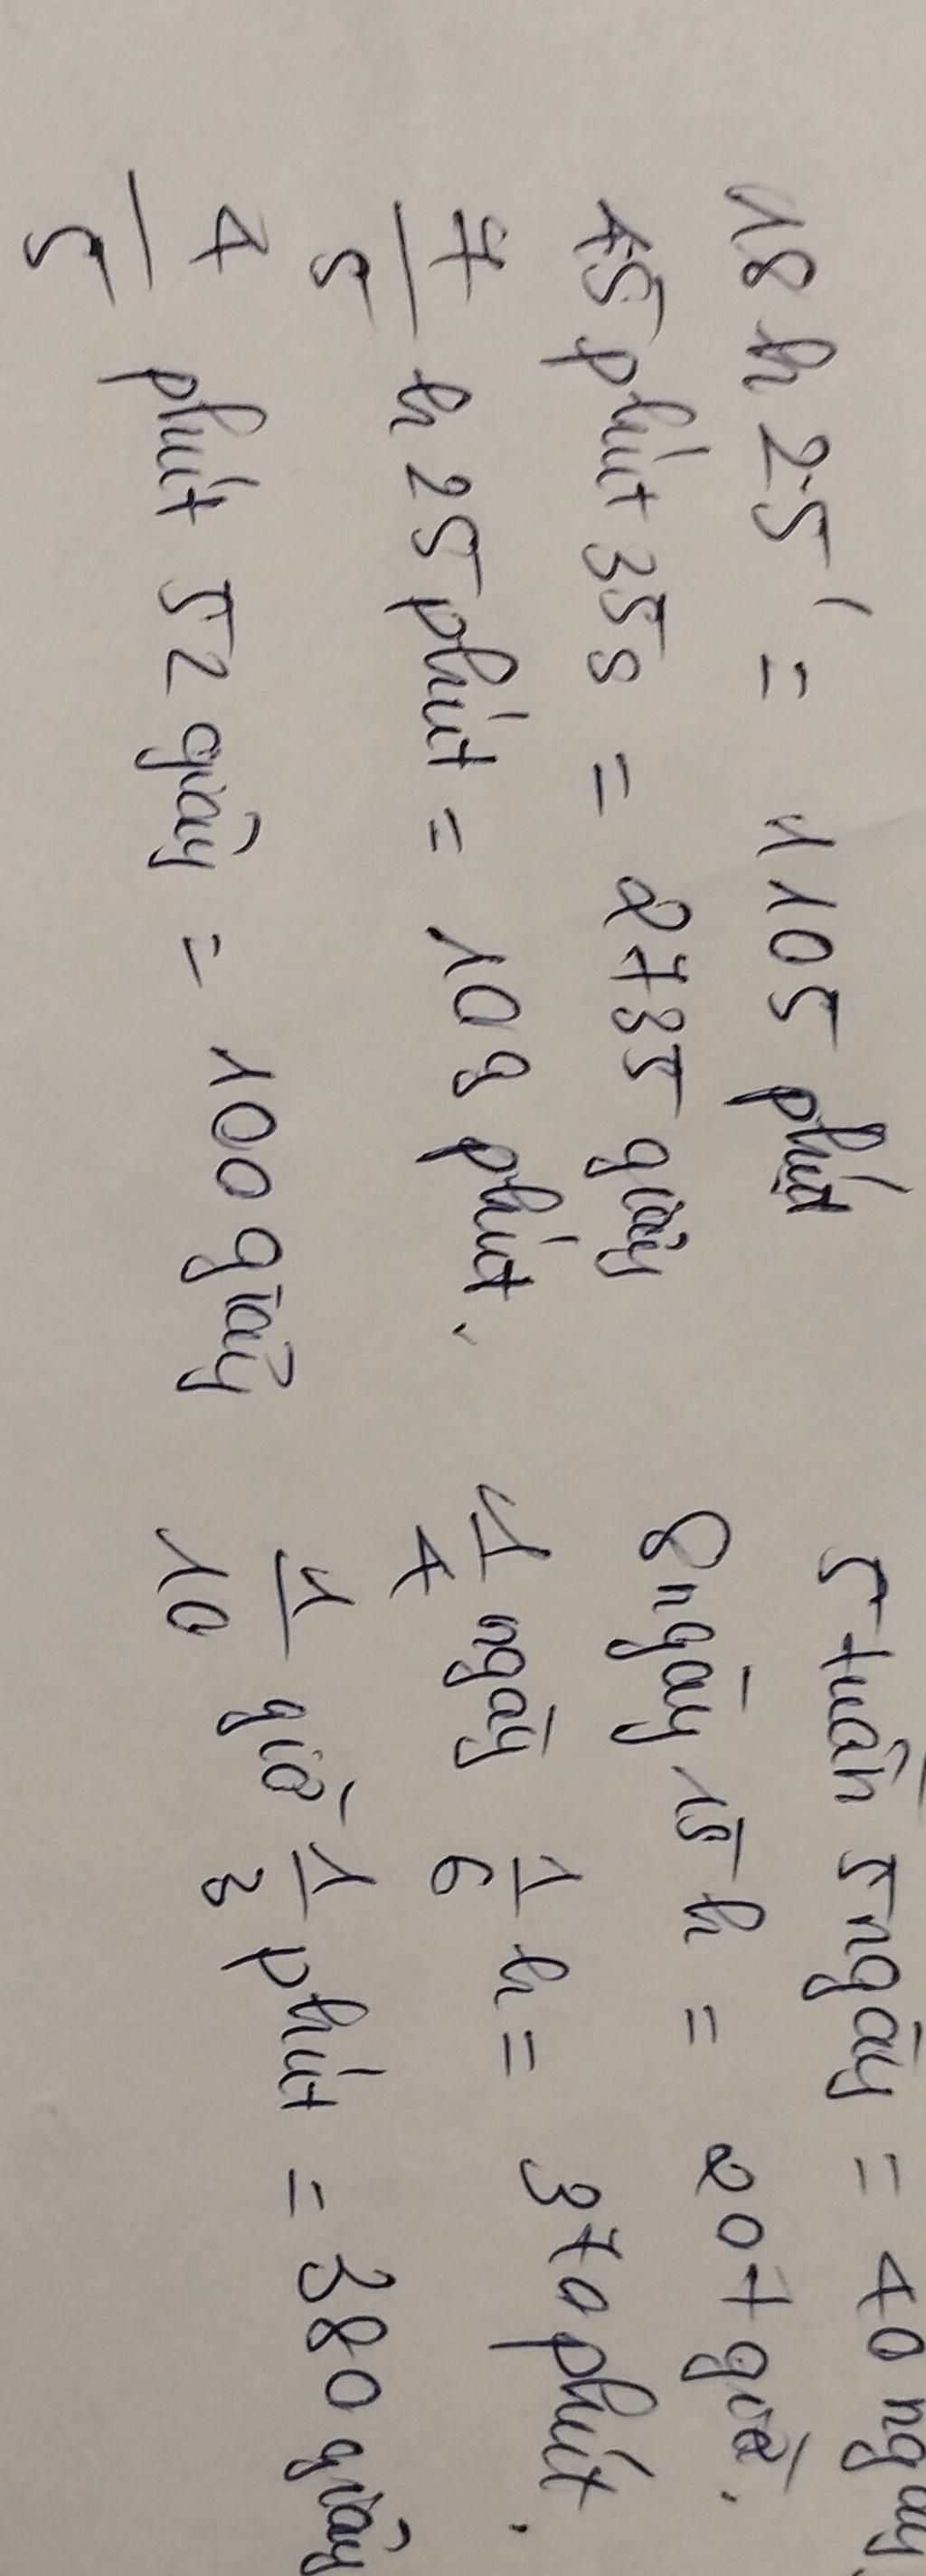 18 h 25' = 1105 phút
45 phút 35 s = 2735 giây
7/5 h 25 phút = 109 phút.
4/5 phút 52 giây = 100 giây
5 tuần 5 ngày = 40 ngày.
8 ngày 15 h = 207 giờ.
1/4 ngày 1/6 h = 370 phút.
1/10 giờ 1/3 phút = 380 giây